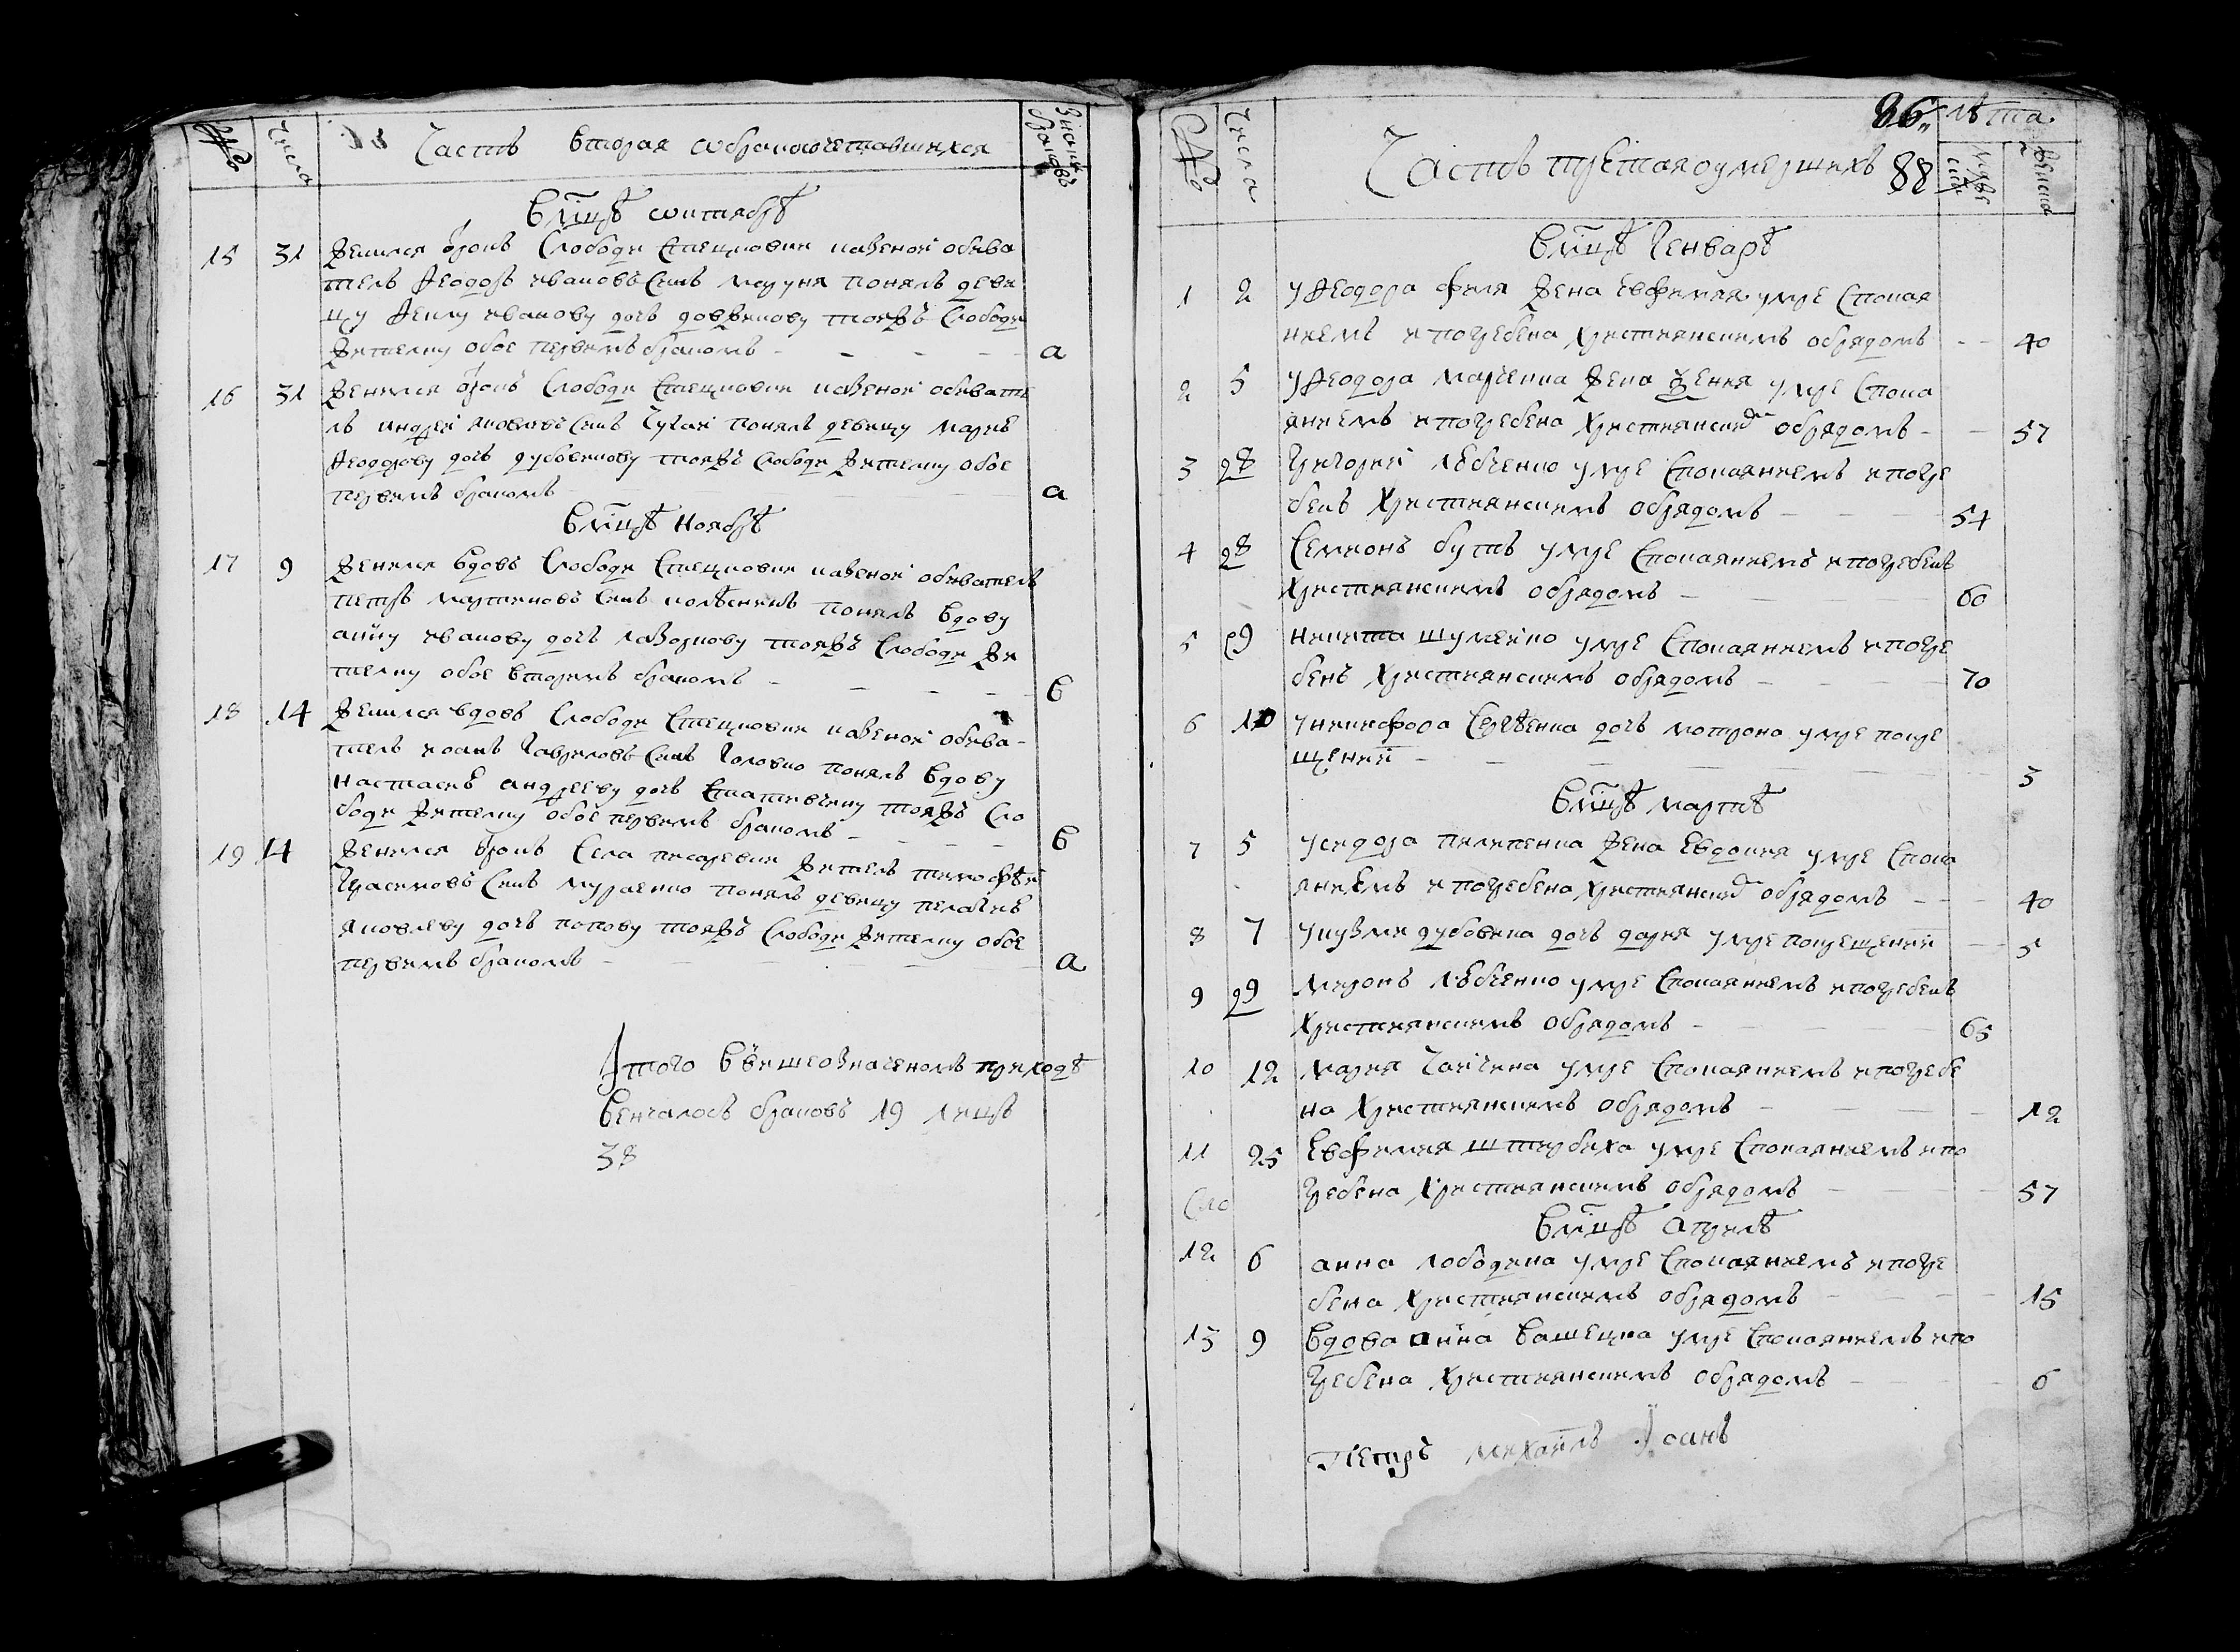 № Числа Часть вторая собракосочетавшихся Знаки браковъ
В мцѣ октябрѣ
15 31 Женился отрокъ слободи Стецковки казеной обива
тель Феодоръ Ивановъ синъ понялъ деви
цу Иванову дочь тояжъ слободи
жителку обое первимъ бракомъ - а
16 31 Женился отрокъ слободи Стецковки казеной обивате
ль Андрей Яковлевъ синъ понялъ девицу Марию
Феодорову дочь Дубовикову тояжъ слободи жителку обое
первимъ бракомъ а
В мцѣ ноябрѣ
17 9 Женился вдовъ слободи Стецковки казеной обиватель
Петръ Мартиновъ синъ понялъ вдову
анну Иванову дочь тояжъ слободи жи
телку обое вторимъ бракомъ - в
18 14 Женился вдовъ слободи Стецковки казеной обива-
тель Иоанъ Гавриловъ синъ Головко понялъ вдову
Настасию Андрееву дочь тояжъ сло
боди жителку обое первимъ бракомъ - в
19 14 Женился отрокъ села Писаревки житель Тимофѣй
Герасимовъ синъ понялъ девицу Пелагию
Яковлеву дочь Попову тояжъ слободи жителку обое
первимъ бракомъ - а
Итого ввишеозначеномъ приходѣ
венчалось браковъ 19 лицъ
38
86 лѣта
№ Числа Часть третая оумершихъ 88 мужеска женска
В мцѣ генварѣ
1 2 у Феодора жена Евфимия умре спокая
ниемъ и погребена християнскимъ обрядомъ - 40
2 5 у Феодора Марченка жена умре спока
яниемъ и погребена християнски обрядомъ - 57
3 28 Григорий умре спокаяниемъ и погре
бенъ християнскимъ обрядомъ - 54
4 28 Семионъ Бутъ умре спокаяниемъ и погребенъ
християнскимъ обрядомъ - 60
5 29 Никита Шумейко умре спокаяниемъ и погре
бенъ християнскимъ обрядомъ - 70
6 10 у Никифора Сергѣенка дочь Мотрона умре покре
щений - 3
В мцѣ мартѣ
7 5 у Сидора Пилипенка жена Евдокия умре спока
яниемъ и погребена християнски обрядомъ - 40
8 7 у Кузми Дубовика дочь Дария умре покрещений - 5
9 29 Миронъ умре спокаяниемъ и погребенъ
християнскимъ обрядомъ - 65
10 12 Мария умре спокаяниемъ и погребе
на християнскимъ обрядомъ - 12
11 25 Евфимия Штирбиха умре спокаяниемъ и по
гребена християнскимъ обрядомъ - 57
Сло
В мцѣ априлѣ
12 6 анна Лободина умре спокаяниемъ и погре
бена християнскимъ обрядомъ - 15
13 9 вдова анна умре спокаяниемъ и по
гребена християнскимъ обрядомъ - 6
Петръ Михаилъ Иоанъ